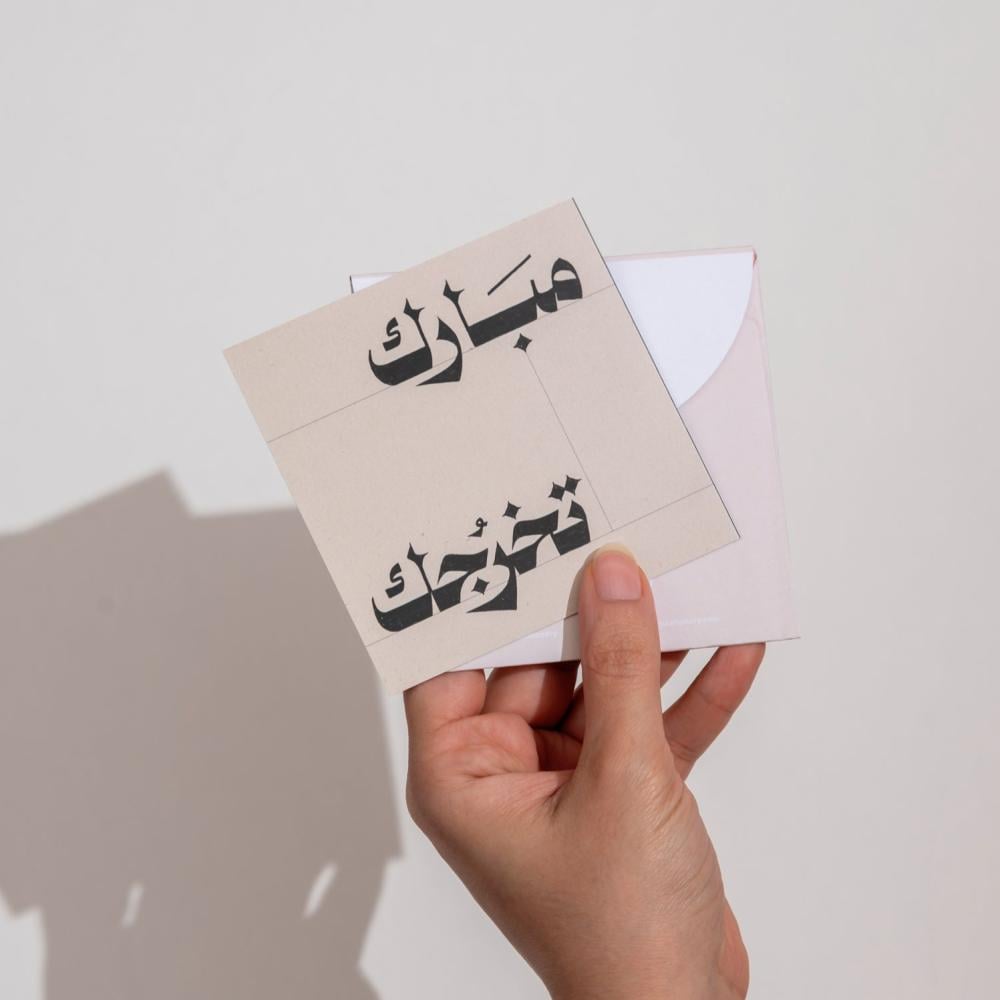 مبَارك
تخرُجك